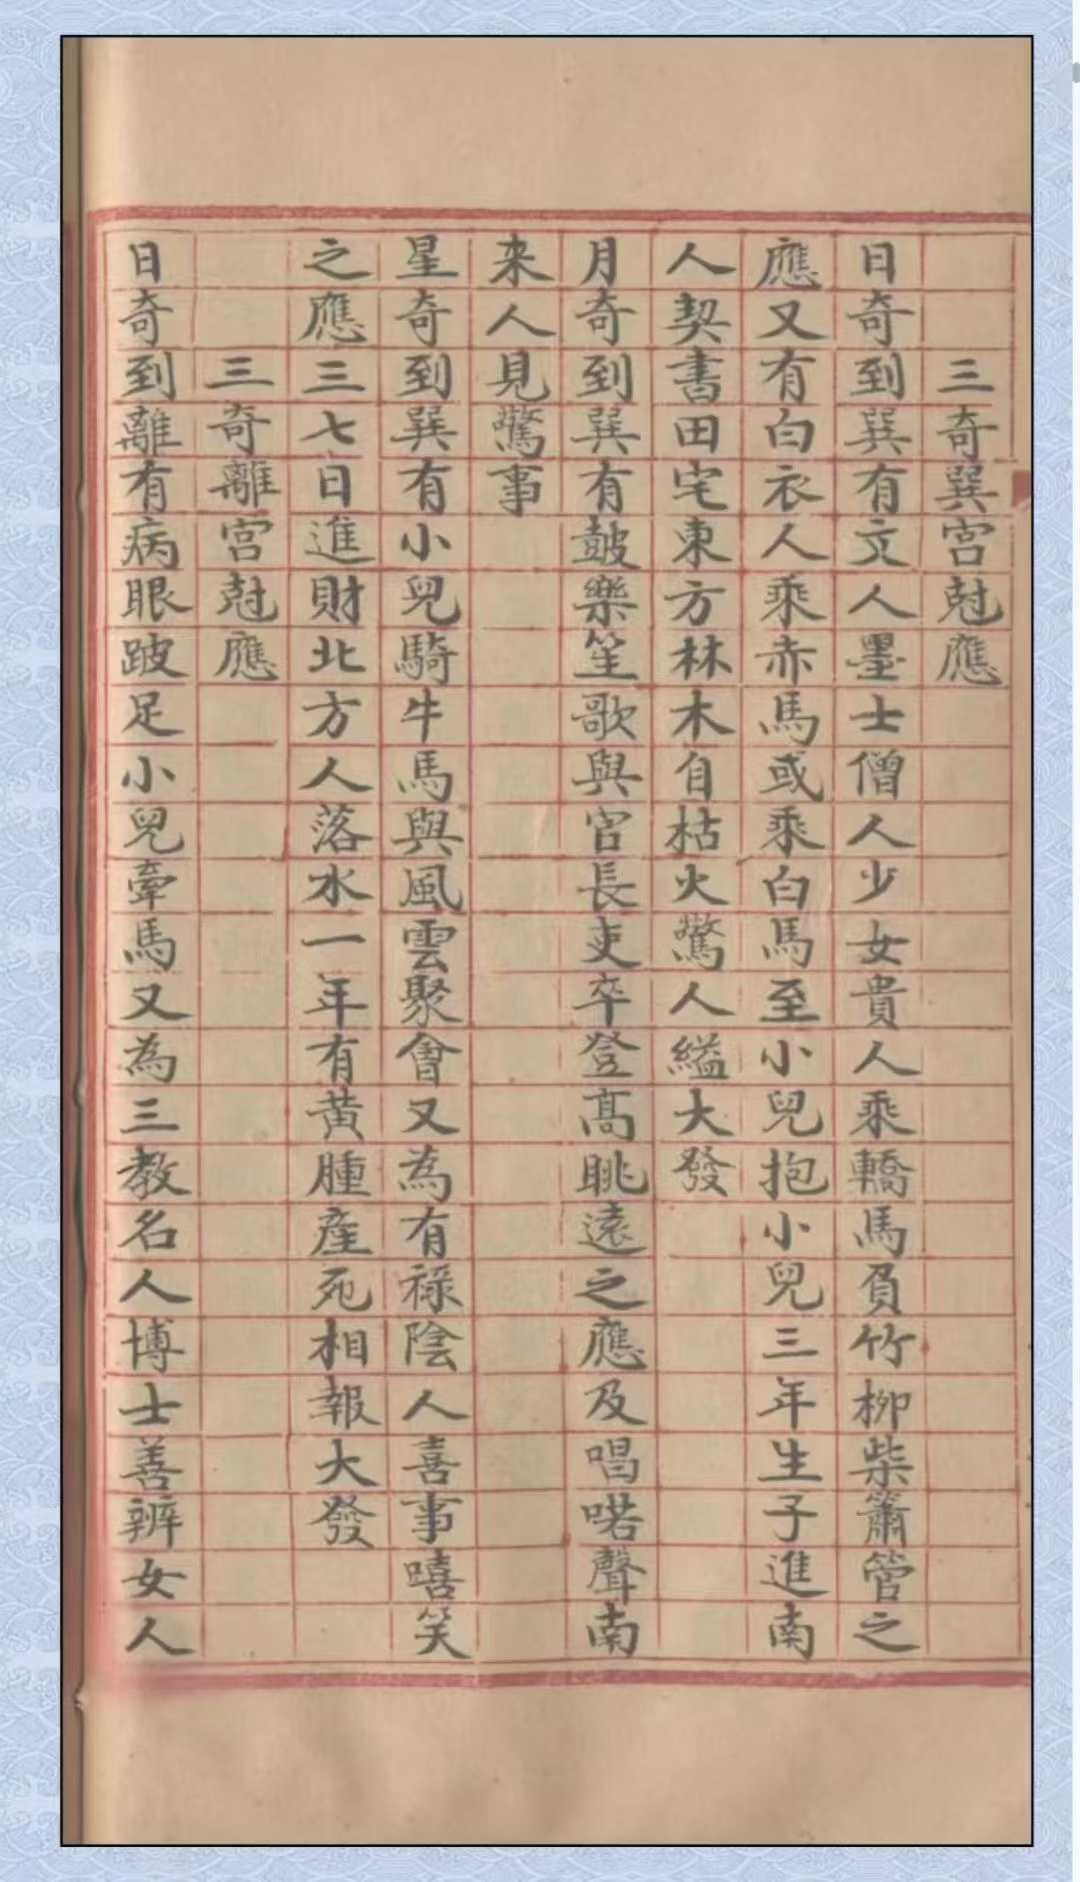 三奇巽宮尅應
日奇到巽有文人墨士僧人少女貴人乘轎馬負竹柳柴簫管之
應又有白衣人乘赤馬或乘白馬至小兒抱小兒三年生子進南
人契書田宅東方林木自枯火驚人縊大發
月奇到巽有鼓樂笙歌與官長吏卒登高眺遠之應及唱喏聲南
来人見驚事
星奇到巽有小兒騎牛馬與風雲聚會又為有祿陰人喜事嘻笑
之應三七日進財北方人落水一年有黃腫產死相報大發
三奇離宮尅應
日奇到離有病眼跛足小兒牽馬又為三教名人博士善辨女人